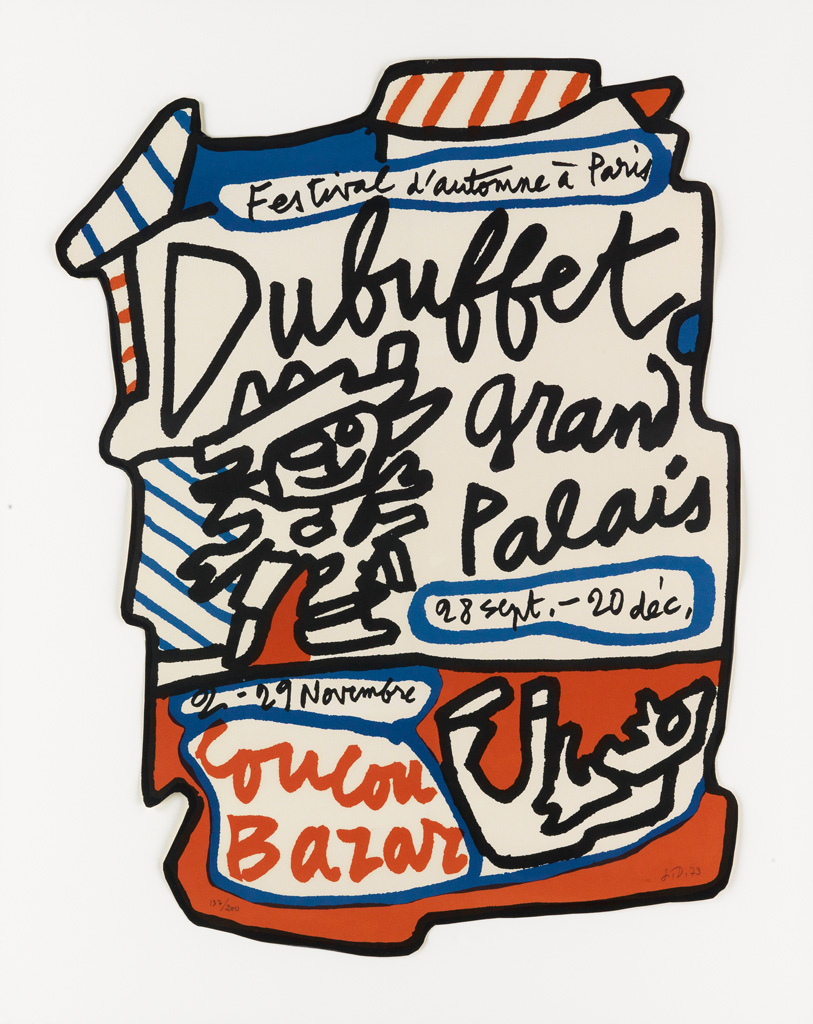 Festival d'automne à Paris
Dubuffet
grand
Palais
28 sept. - 20 déc.
2 - 29 Novembre
Coucou
Bazar
137/200
J.D. 73